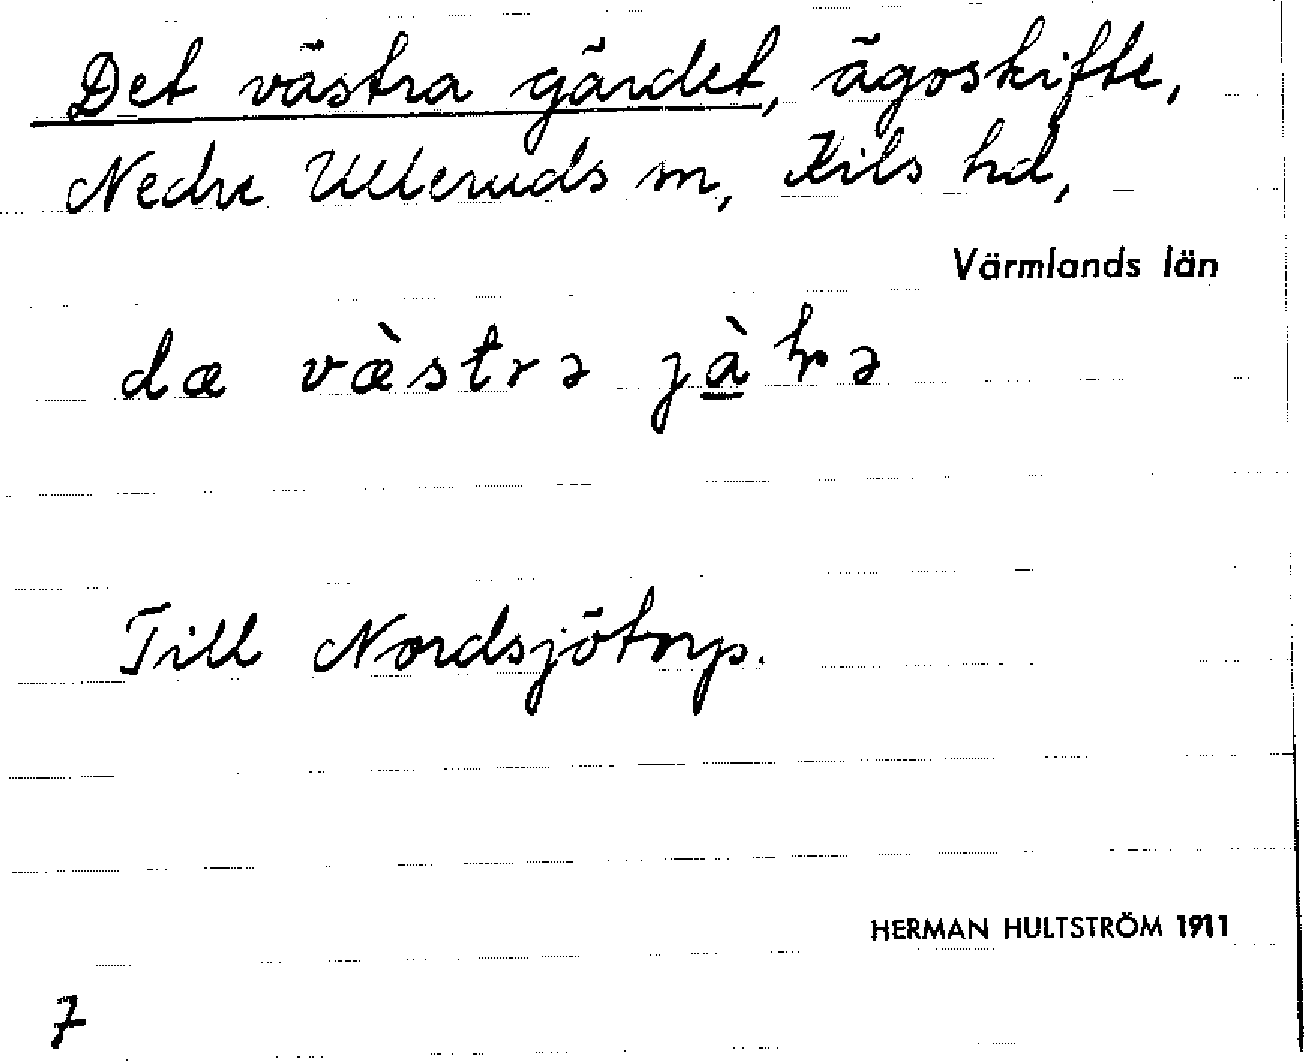 Det västra gärdet, ägoskifte,
Nedre Ulleruds sn, Kils hd,
Värmlands län
dæ væ̀strə
Till Nordsjötorp.
HERMAN HULTSTRÖM 1911
7